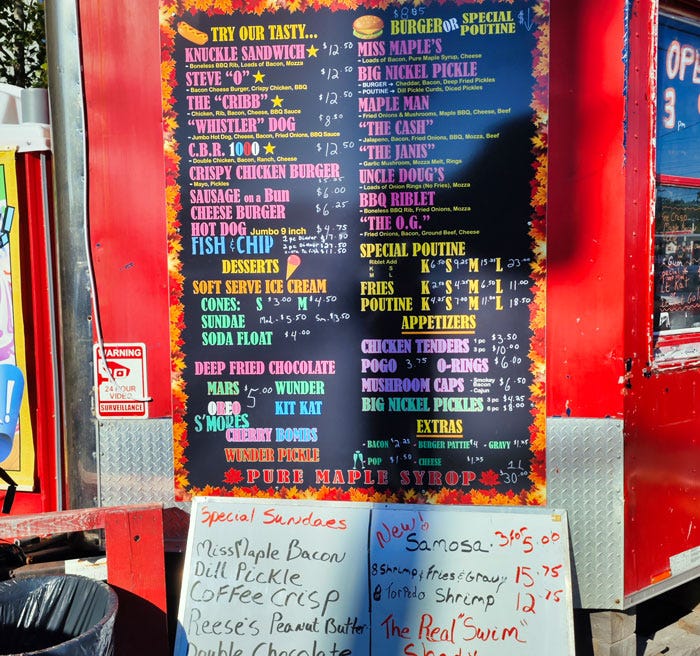 TRY OUR TASTY...
KNUCKLE SANDWICH $12.50
- Boneless BBQ Rib, Loads of Bacon, Mozza
STEVE "O" $12.50
- Bacon Cheese Burger, Crispy Chicken, BBQ
THE "CRIBB" $12.50
- Chicken, Rib, Bacon, Cheese, BBQ Sauce
"WHISTLER" DOG $8.50
- Jumbo Hot Dog, Cheese, Bacon, Fried Onions, BBQ Sauce
C.B.R. 1000 $12.50
- Double Chicken, Bacon, Ranch, Cheese
CRISPY CHICKEN BURGER
- Mayo, Pickles
SAUSAGE on a Bun $6.00
CHEESE BURGER $6.25
HOT DOG Jumbo 9 inch $4.75
FISH & CHIP 1 pc Dinner $17.50
2 pc Dinner $27.50
DESSERTS
SOFT SERVE ICE CREAM
CONES: S $3.00 M $4.50
SUNDAE Med. $5.50 Sm. $3.50
SODA FLOAT $4.00
DEEP FRIED CHOCOLATE
MARS $5.00 WUNDER
OREO KIT KAT
S'MORES
CHERRY BOMBS
WUNDER PICKLE
BURGER OR SPECIAL POUTINE
MISS MAPLE'S
- Loads of Bacon, Pure Maple Syrup, Cheese
BIG NICKEL PICKLE
- BURGER → Cheddar, Bacon, Deep Fried Pickles
- POUTINE → Dill Pickle Curds, Diced Pickles
MAPLE MAN
- Fried Onions & Mushrooms, Maple BBQ, Cheese, Beef
"THE CASH"
- Jalapeno, Bacon, Fried Onions, BBQ, Mozza, Beef
"THE JANIS"
- Garlic Mushroom, Mozza Melt, Rings
UNCLE DOUG'S
- Loads of Onion Rings (No Fries), Mozza
BBQ RIBLET
- Boneless BBQ Rib, Fried Onions, Mozza
"THE O.G."
- Fried Onions, Bacon, Ground Beef, Cheese
SPECIAL POUTINE
Riblet Add
K
S
M
L
K 6.50 S 9.25 M 15.25 L 23.00
FRIES K S M 6.50 L 11.00
POUTINE K S M L 18.50
APPETIZERS
CHICKEN TENDERS 1 pc $3.50
3 pc $10.00
POGO 3.75 O-RINGS $6.00
MUSHROOM CAPS - Smokey Bacon $6.50
- Cajun
BIG NICKEL PICKLES 3 pc $4.25
6 pc $8.00
EXTRAS
- BACON $2.25 - BURGER PATTIE $4 - GRAVY $1.25
- POP $1.50 - CHEESE $1.25
PURE MAPLE SYROP 1L $30.00
WARNING
24 HOUR
VIDEO
SURVEILLANCE
OPE
3 pm
Special Sundaes
Miss Maple Bacon
Dill Pickle
Coffee Crisp
Reese's Peanut Butter
Double Chocolate
New!
Samosa 3 for 5.00
8 Shrimp & Fries & Gravy 15.75
8 Torpedo Shrimp 12.75
The Real "Swim"